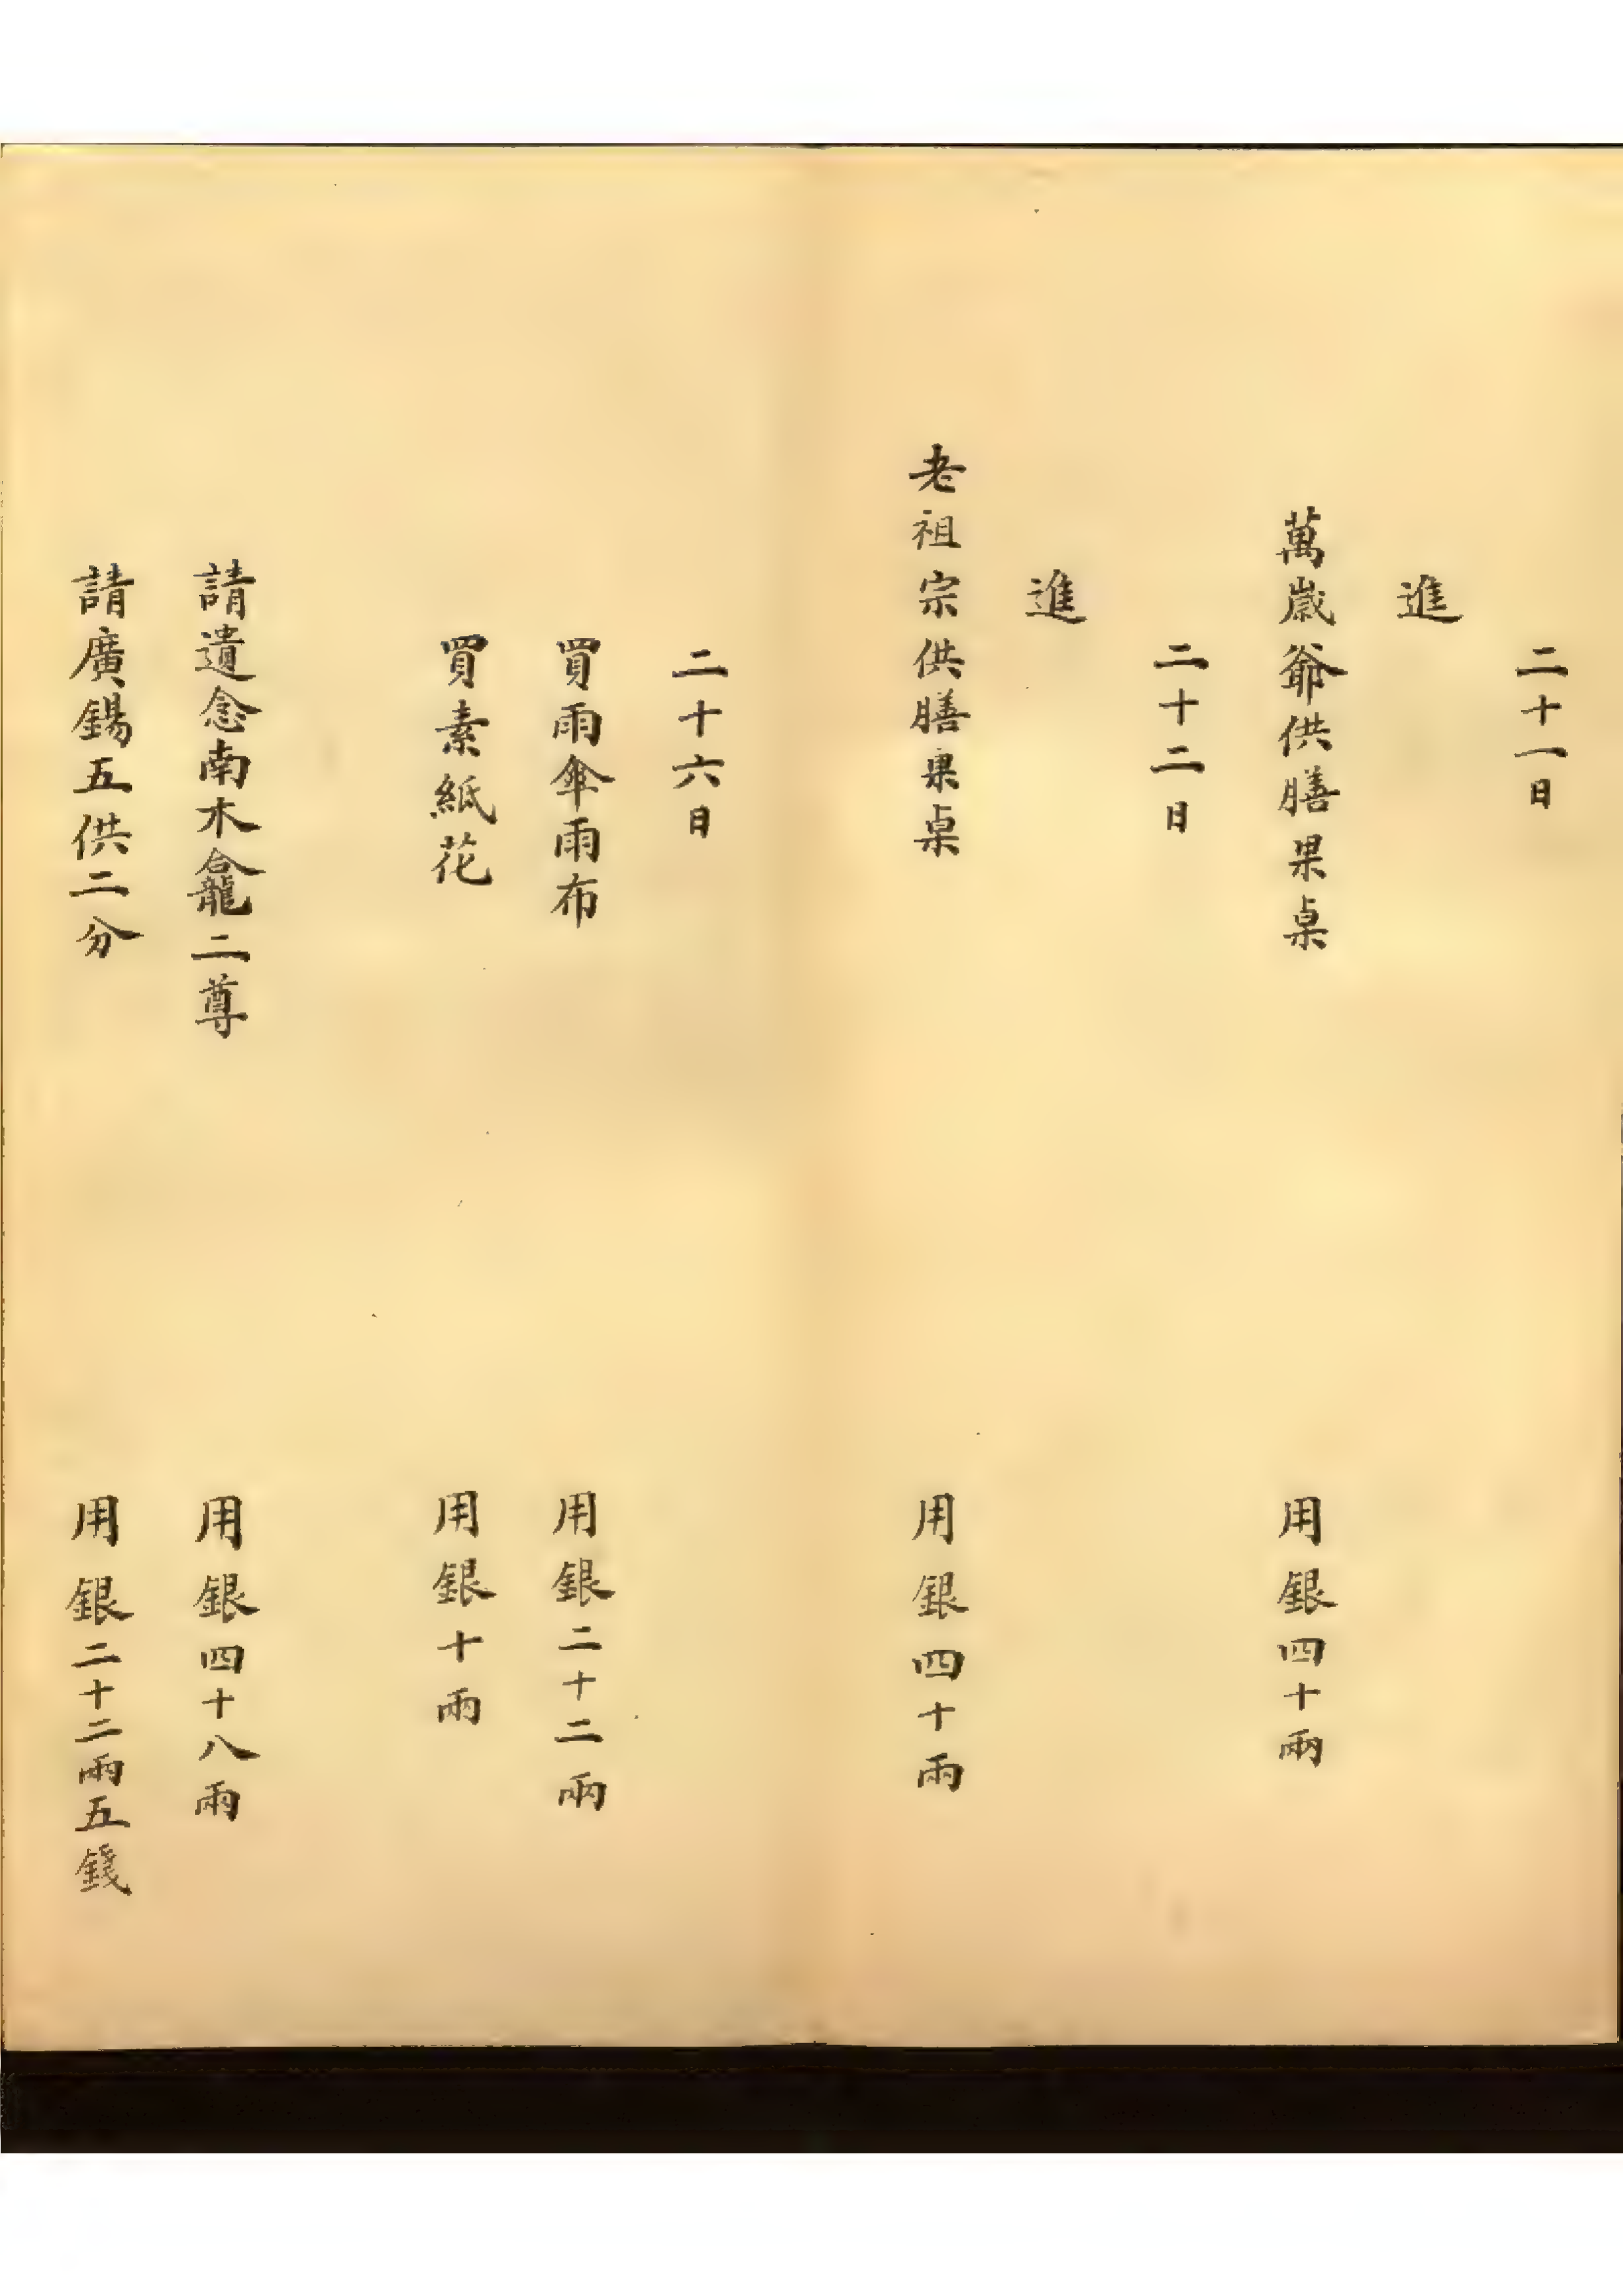 二十一日
進
萬歲爺供膳果桌 用銀四十兩
二十二日
進
老祖宗供膳菓桌 用銀四十兩
二十六日
買雨傘雨布 用銀二十二兩
買素紙花 用銀十兩
請遺念南木龕二尊 用銀四十八兩
請廣錫五供二分 用銀二十二兩五錢